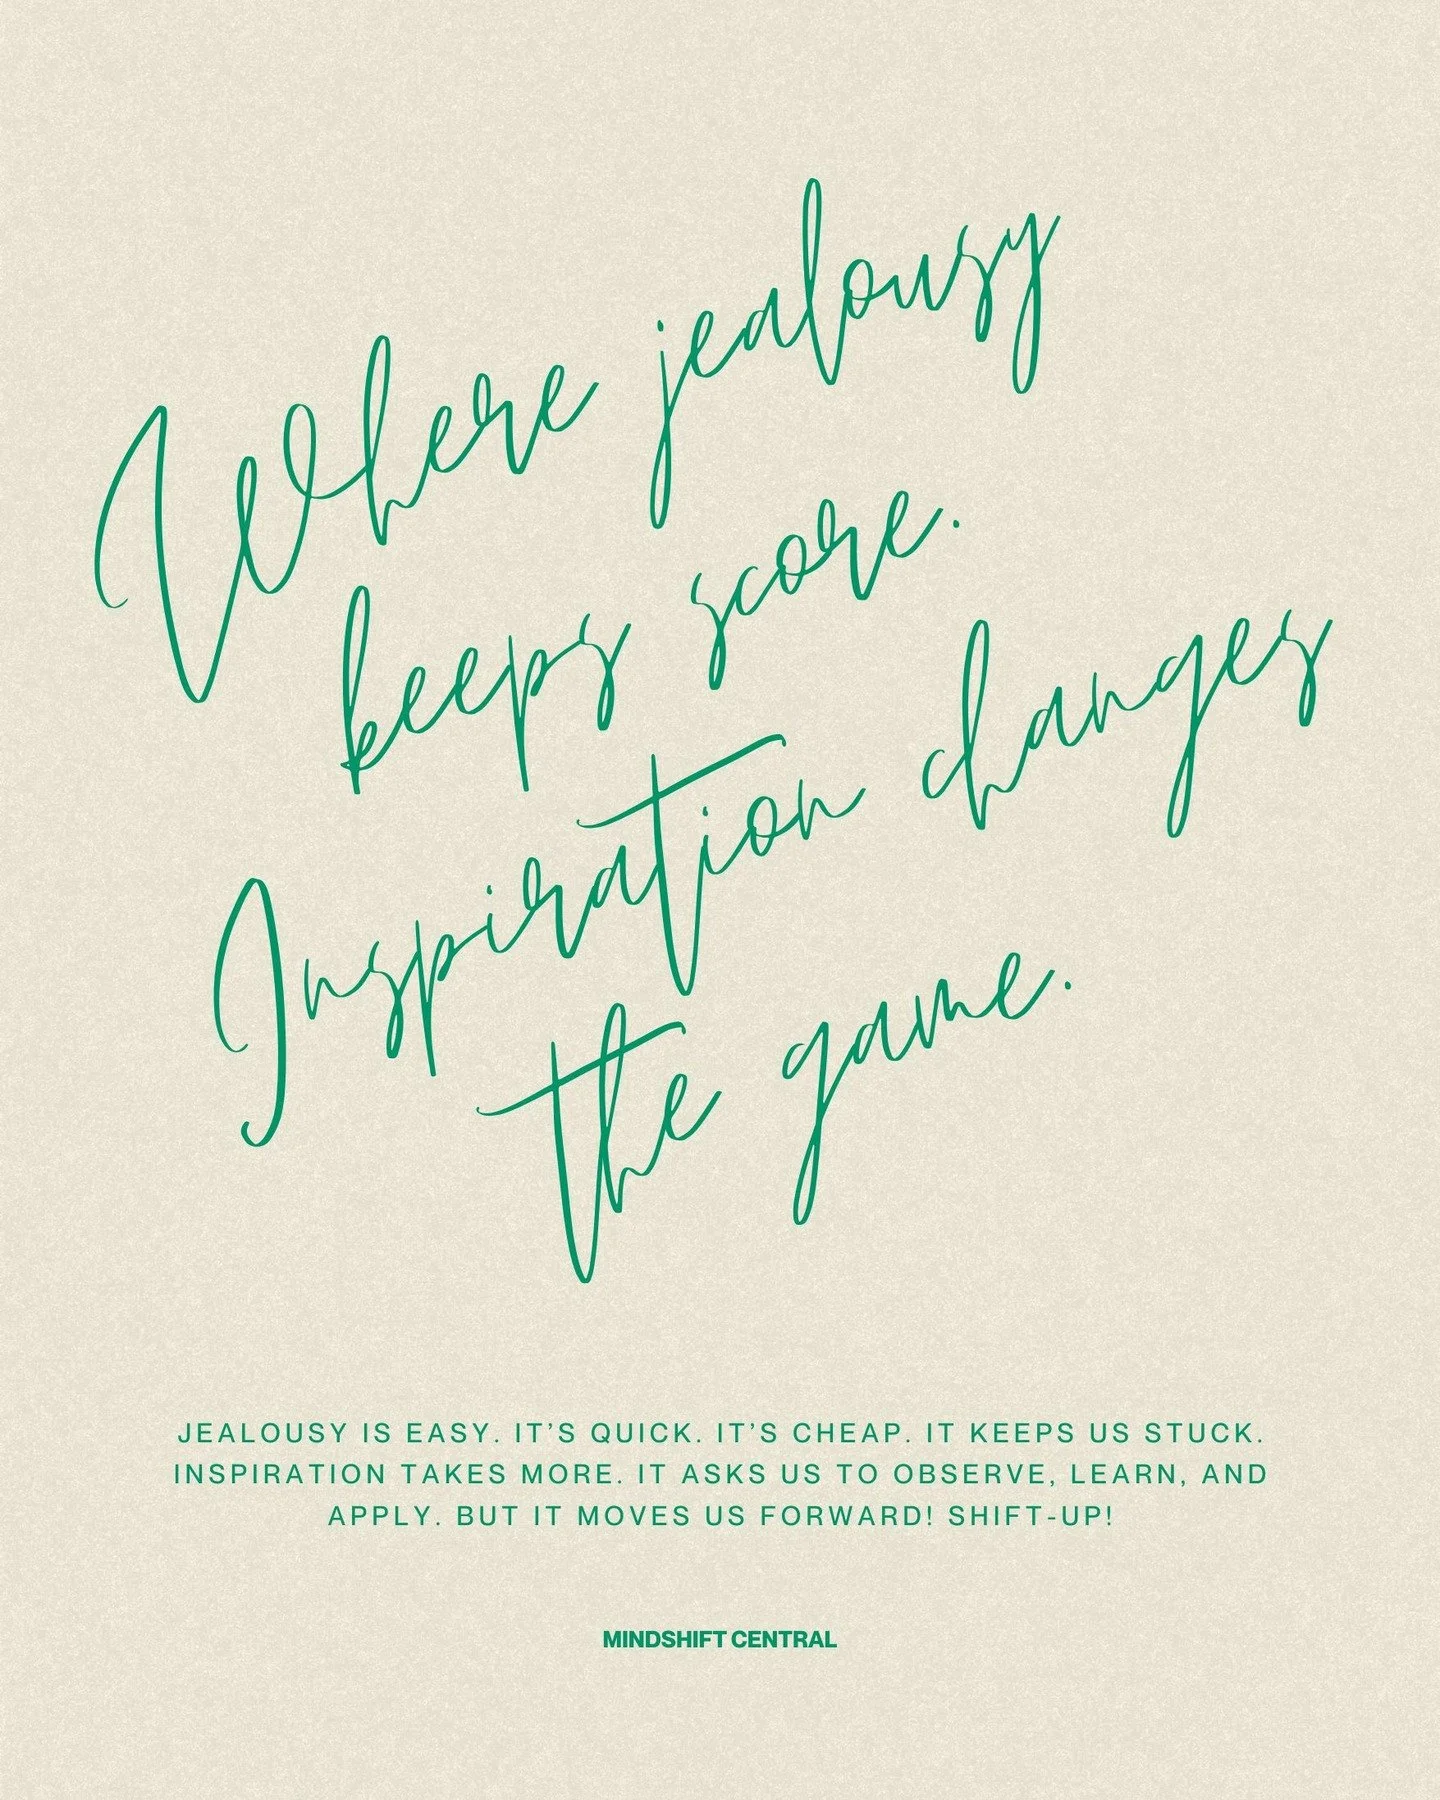 Where jealousy
keeps score.
Inspiration changes
the game.
JEALOUSY IS EASY. IT'S QUICK. IT'S CHEAP. IT KEEPS US STUCK.
INSPIRATION TAKES MORE. IT ASKS US TO OBSERVE, LEARN, AND
APPLY. BUT IT MOVES US FORWARD! SHIFT-UP!
MINDSHIFT CENTRAL